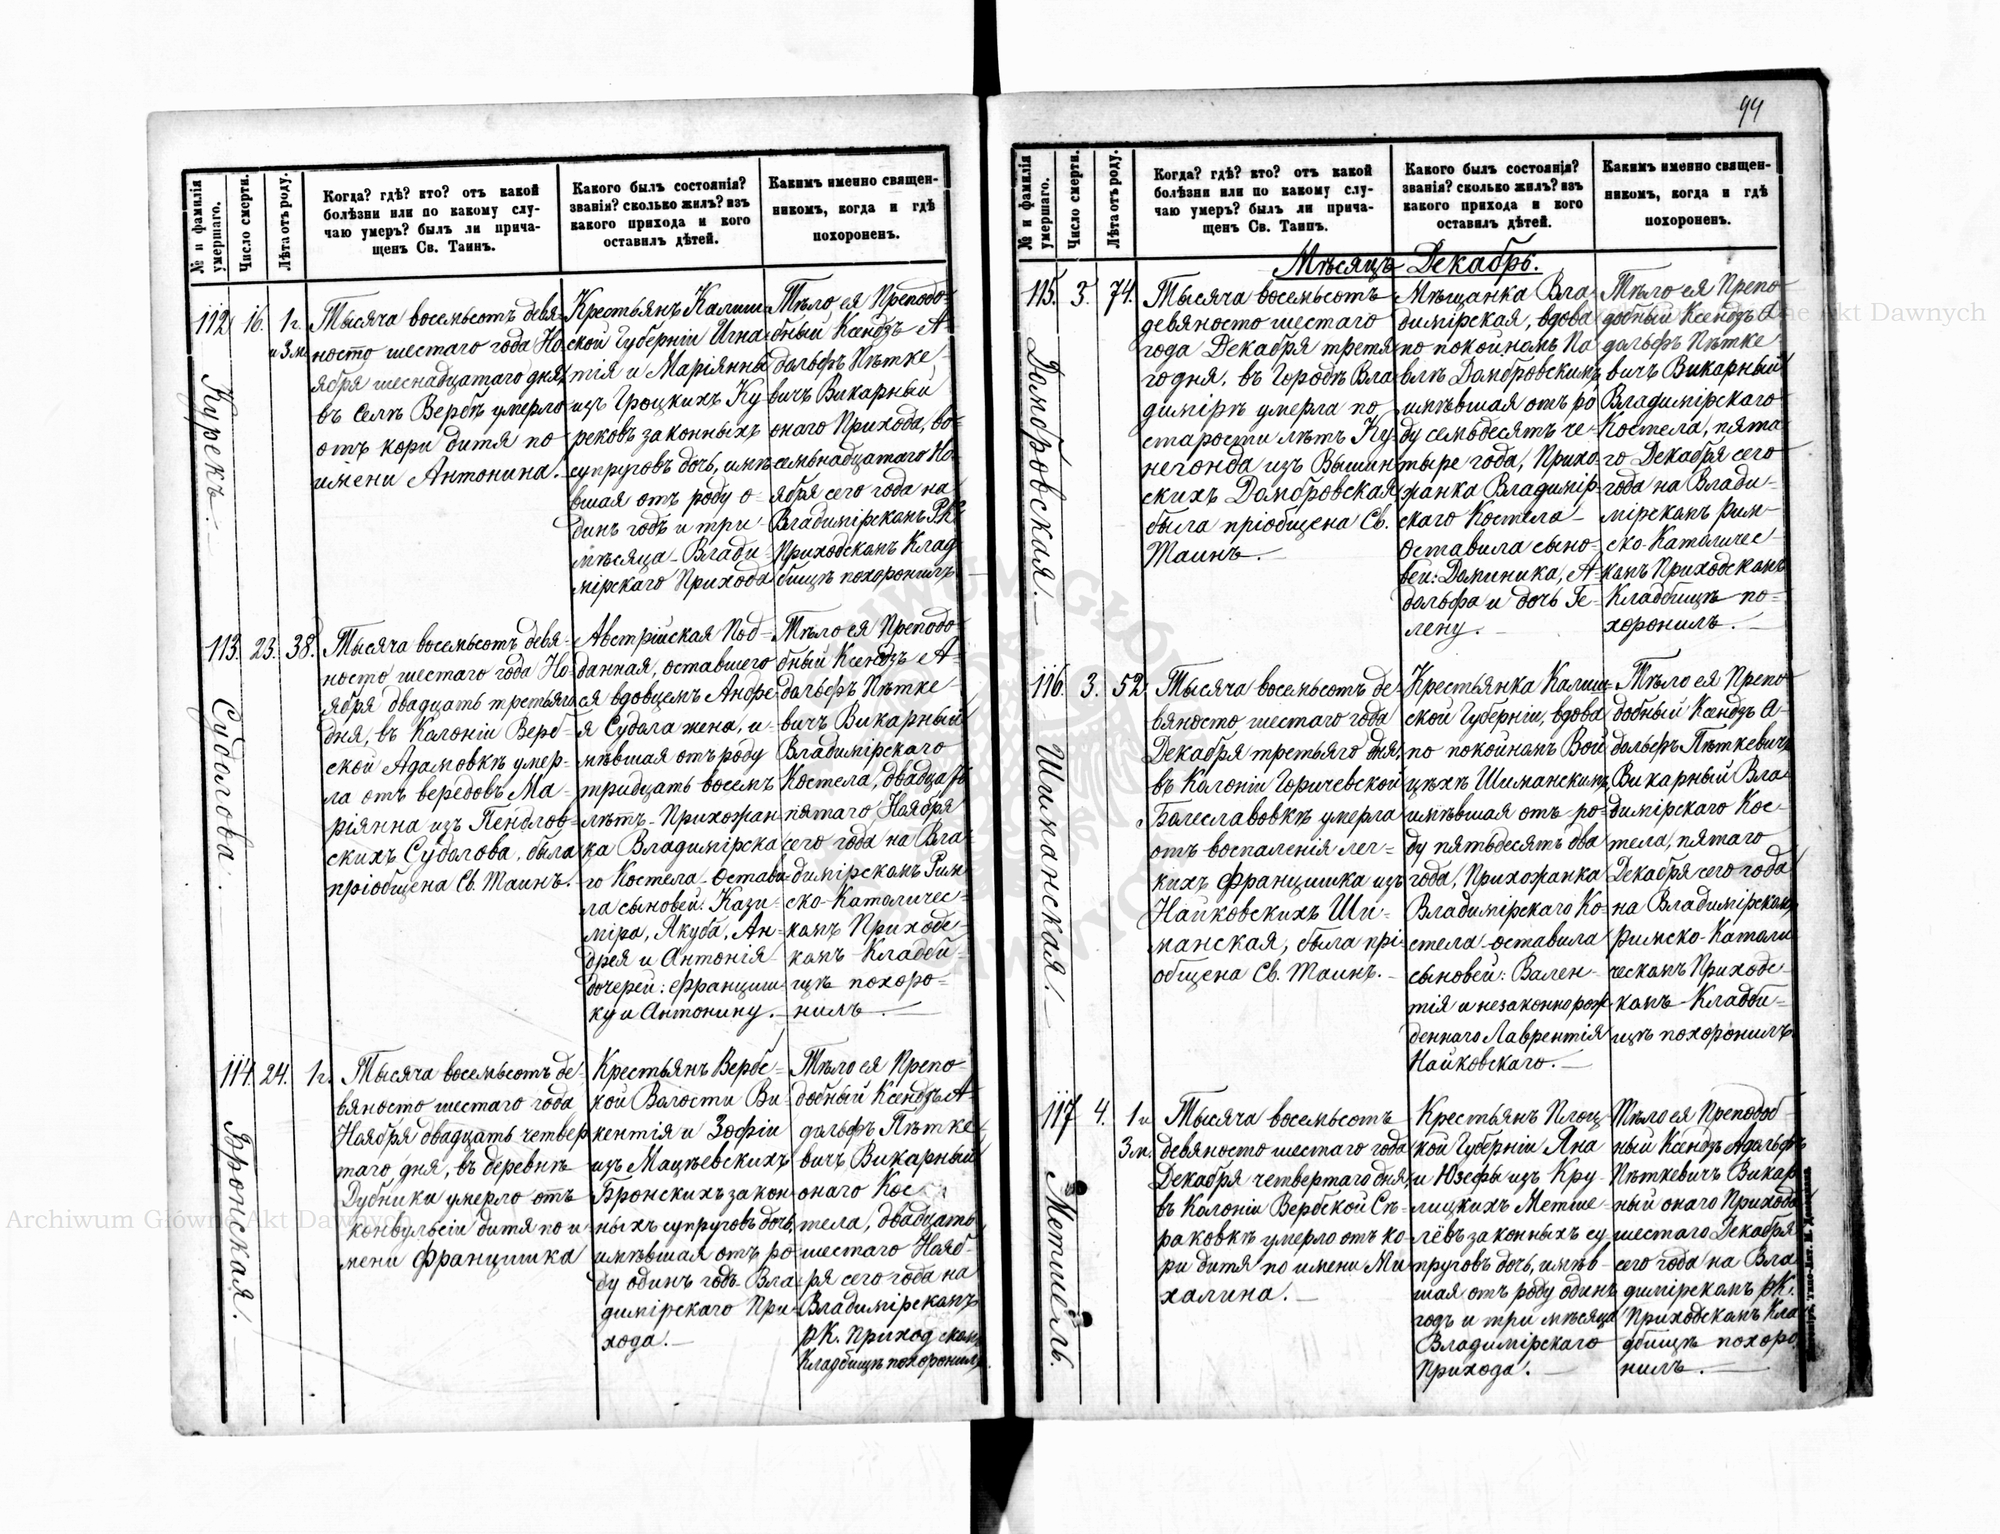 № и фамилія умершаго.
Число смерти.
Лѣта отъ роду.
Когда? гдѣ? кто? отъ какой
болѣзни или по какому слу-
чаю умеръ? былъ ли прича-
щенъ Св. Таинъ.
Какого былъ состоянія?
званія? сколько жилъ? изъ
какого прихода и кого
оставилъ дѣтей.
Какимъ именно священ-
никомъ, когда и гдѣ
похороненъ.
112
Курекъ.
16.
1 г.
и 3 м.
Тысяча восемьсотъ девя-
носто шестаго года Но-
ября шеснадцатаго дня,
въ селѣ Вербѣ умерло
отъ кори дитя по
имени Антонина.
Крестьянъ Калиш-
ской Губерніи Игна-
тія и Маріянны
изъ Гроцкихъ Ку-
рековъ законныхъ
супруговъ дочь, имѣ-
вшая отъ роду о-
динъ годъ и три
мѣсяца Влади-
мірскаго Прихода
Тѣло ея Преподо-
бный Ксендзъ А-
дольфъ Пѣтке-
вичъ Викарный
онаго Прихода, во-
семьнадцатаго Но-
ября сего года на
Владимірскомъ Р.К.
Приходскомъ Клад-
бищѣ похоронилъ.
113.
Судолова.
23.
38.
Тысяча восемьсотъ девя-
носто шестаго года Но-
ября двадцать третьяго
дня, въ Колоніи Верб-
ской Адамовкѣ умер-
ла отъ вередовъ Ма-
ріянна изъ Пендлов-
скихъ Судолова, была
пріобщена Св. Таинъ.
Австрійская Под-
данная, оставшего
ся вдовцемъ Андре-
я Судола жена, и-
мѣвшая отъ роду
тридцать восемъ
лѣтъ Прихожан-
ка Владимірска
го Костела Остави-
ла сыновей: Кази-
міра, Якуба, Ан-
дрея и Антонія
дочерей: Францишку и Антонину.
Тѣло ея Преподо-
бный Ксендзъ А-
дольфъ Пѣтке-
вичъ Викарный
Владимірскаго
Костела, двадцать
пятаго Ноября
сего года на Вла-
димірскомъ Рим-
ско-Католичес-
комъ Приходс-
комъ Кладби-
щѣ похоро-
нилъ.
114.
Бронская.
24.
1 г.
Тысяча восемьсотъ де-
вяносто шестаго года
Ноября двадцать четвер
таго дня, въ деревнѣ
Дубники умерло отъ
конвульсіи дитя по и
мени Францишка
Крестьянъ Вербс-
кой Волости Ви-
кентія и Зофіи
изъ Мацѣевскихъ
Бронскихъ закон
ныхъ супруговъ дочь,
имѣвшая отъ ро
ду одинъ годъ Вла-
димірскаго При-
хода.
Тѣло ея Препо-
добный Ксендзъ А-
дольфъ Пѣтке-
вичъ Викарный
онаго Кос
тела, двадцать
шестаго Нояб-
ря сего года на
Владимірскомъ
РК. Приходскомъ
Кладбищѣ похоронилъ.
94
№ и фамилія умершаго.
Число смерти.
Лѣта отъ роду.
Когда? гдѣ? кто? отъ какой
болѣзни или по какому слу-
чаю умеръ? былъ ли прича-
щенъ Св. Таинъ.
Какого былъ состоянія?
званія? сколько жилъ? изъ
какого прихода и кого
оставилъ дѣтей.
Какимъ именно священ-
никомъ, когда и гдѣ
похороненъ.
Мѣсяцъ Декабрь.
115.
Домбровская.
3.
74.
Тысяча восемьсотъ
девяносто шестаго
года Декабря третья
го дня, въ Городѣ Вла
димірѣ умерла по
старости лѣтъ Ку-
негонда изъ Вышин
скихъ Домбровская
была пріобщена Св.
Таинъ.
Мѣщанка Вла-
димірская, вдова
по покойномъ Па
влѣ Домбровскимъ,
имѣвшая отъ ро
ду семьдесятъ че-
тыре года, Прихо-
жанка Владимір-
скаго Костела
Оставила сыно-
вей: Доминика, А-
дольфа и дочь Ге-
лену.
Тѣло ея Препо-
добный Ксендзъ А-
дольфъ Пѣтке-
вичъ Викарный
Владимірскаго
Костела, пята
го Декабря сего
года на Влади-
мірскомъ Рим-
ско-Католичес-
комъ Приходскомъ
Кладбищѣ по-
хоронилъ.
116.
Шиманская.
3.
52.
Тысяча восемьсотъ де-
вяносто шестаго года
Декабря третьяго дня,
въ Колоніи Горичевской
Болеславовкѣ умерла
отъ воспаленія лег-
кихъ Францишка изъ
Найковскихъ Ши-
манская, была прі-
общена Св. Таинъ.
Крестьянка Калиш-
ской Губерніи, вдова
по покойномъ Вой
цѣхѣ Шиманскимъ,
имѣвшая отъ ро-
ду пятьдесятъ два
года, Прихожанка
Владимірскаго Ко-
стела оставила
сыновей: Вален-
тія и незаконнорож
деннаго Лаврентія
Найковскаго.
Тѣло ея Препо
добный Ксендзъ А-
дольфъ Пѣткевичъ
Викарный Вла-
димірскаго Кос-
тела, пятаго
Декабря сего года
на Владимірскомъ
Римско-Католи
ческомъ Приходс-
комъ Кладби-
щѣ похоронилъ.
117
Метшель.
4.
1 и
3 м.
Тысяча восемьсотъ
девяносто шестаго года
Декабря четвертаго дня,
въ Колоніи Вербской Сѣ-
раковкѣ умерло отъ ко-
ри дитя по имени Ми
халина.
Крестьянъ Плоц-
кой Губерніи Яна
и Юзефы изъ Кру-
лицкихъ Метше-
лёвъ законныхъ су
пруговъ дочь, имѣв-
шая отъ роду одинъ
годъ и три мѣсяца
Владимірскаго
Прихода.
Тѣло ея Преподоб
ный Ксендзъ Адольфъ
Пѣткевичъ Викар
ный онаго Прихода
шестаго Декабря
сего года на Вла
димірскомъ РК.
Приходскомъ Кла
дбищѣ похоро
нилъ.
Archiwum Główne Akt Dawnych